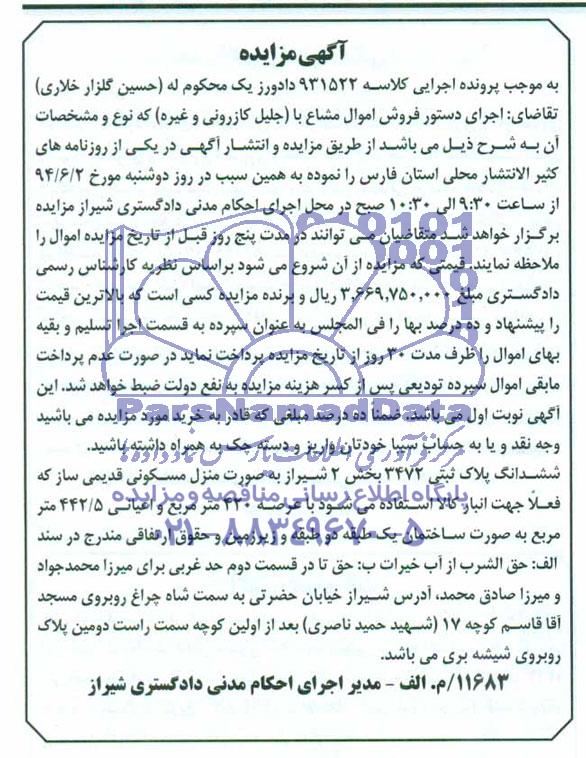 آگهی مزایده
به موجب پرونده اجرایی کلاسه ۹۳۱۵۲۲ دادورز یک محکوم له (حسین گلزار خلاری)
تقاضای: اجرای دستور فروش اموال مشاع با (جلیل کازرونی و غیره) که نوع و مشخصات
آن به شرح ذیل می باشد از طریق مزایده و انتشار آگهی در یکی از روزنامه های
کثیر الانتشار محلی استان فارس را نموده به همین سبب در روز دوشنبه مورخ ۹۴/۶/۲
از ساعت ۹:۳۰ الی ۱۰:۳۰ صبح در محل اجرای احکام مدنی دادگستری شیراز مزایده
برگزار خواهد شد متقاضیان می توانند در مدت پنج روز قبل از تاریخ مزایده اموال را
ملاحظه نمایند. قیمتی که مزایده از آن شروع می شود براساس نظریه کارشناس رسمی
دادگستری مبلغ ۳,۶۶۹,۷۵۰,۰۰۰ ریال و برنده مزایده کسی است که بالاترین قیمت
را پیشنهاد و ده درصد بها را فی المجلس به عنوان سپرده به قسمت اجرا تسلیم و بقیه
بهای اموال را ظرف مدت ۳۰ روز از تاریخ مزایده پرداخت نماید در صورت عدم پرداخت
مابقی اموال سپرده تودیعی پس از کسر هزینه مزایده به نفع دولت ضبط خواهد شد. این
آگهی نوبت اول می باشد. ضمناً ده درصد مبلغی که قادر به خرید مورد مزایده می باشید
وجه نقد و یا به حساب سیبا خودتان واریز و دسته چک به همراه داشته باشید.
ششدانگ پلاک ثبتی ۳۴۷۲ بخش ۲ شیراز به صورت منزل مسکونی قدیمی ساز که
فعلاً جهت انبار کالا استفاده می شود با عرصه ۴۳۰ متر مربع و اعیانی ۴۴۲/۵ متر
مربع به صورت ساختمان یک طبقه دو طبقه و زیرزمین و حقوق ارتفاقی مندرج در سند
الف: حق الشرب از آب خیرات ب: حق تا در قسمت دوم حد غربی برای میرزا محمدجواد
و میرزا صادق محمد، آدرس شیراز خیابان حضرتی به سمت شاه چراغ روبروی مسجد
آقا قاسم کوچه ۱۷ (شهید حمید ناصری) بعد از اولین کوچه سمت راست دومین پلاک
روبروی شیشه بری می باشد.
۱۱۶۸۳/م. الف - مدیر اجرای احکام مدنی دادگستری شیراز
ParsNamadData
پایگاه اطلاع رسانی مناقصه و مزایده
۰۲۱-۸۸۳۴۹۶۷۰-۵